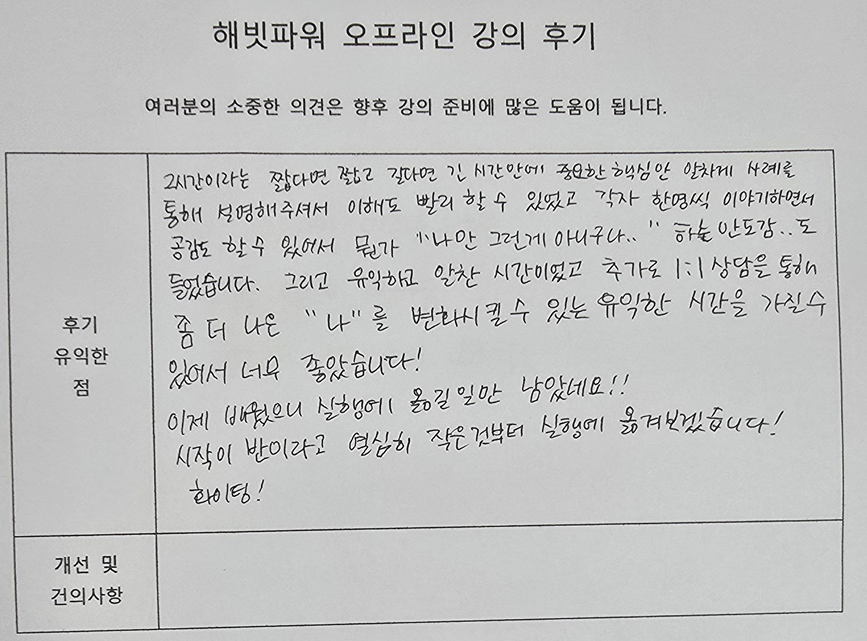 해빗파워 오프라인 강의 후기
여러분의 소중한 의견은 향후 강의 준비에 많은 도움이 됩니다.
후기
유익한
점
2시간이라는 짧다면 짧고 길다면 긴 시간안에 중요한 핵심만 알차게 사례를
통해 설명해주셔서 이해도 빨리 할 수 있었고 각자 한명씩 이야기하면서
공감도 할 수 있어서 뭔가 "나만 그런게 아니구나.." 하는 안도감..도
들었습니다. 그리고 유익하고 알찬 시간이었고 추가로 1:1 상담을 통해
좀 더 나은 "나"를 변화시킬 수 있는 유익한 시간을 가질 수
있어서 너무 좋았습니다!
이제 배웠으니 실행에 옮길 일만 남았네요!!
시작이 반이라고 열심히 작은것부터 실행에 옮겨보겠습니다!
화이팅!
개선 및
건의사항